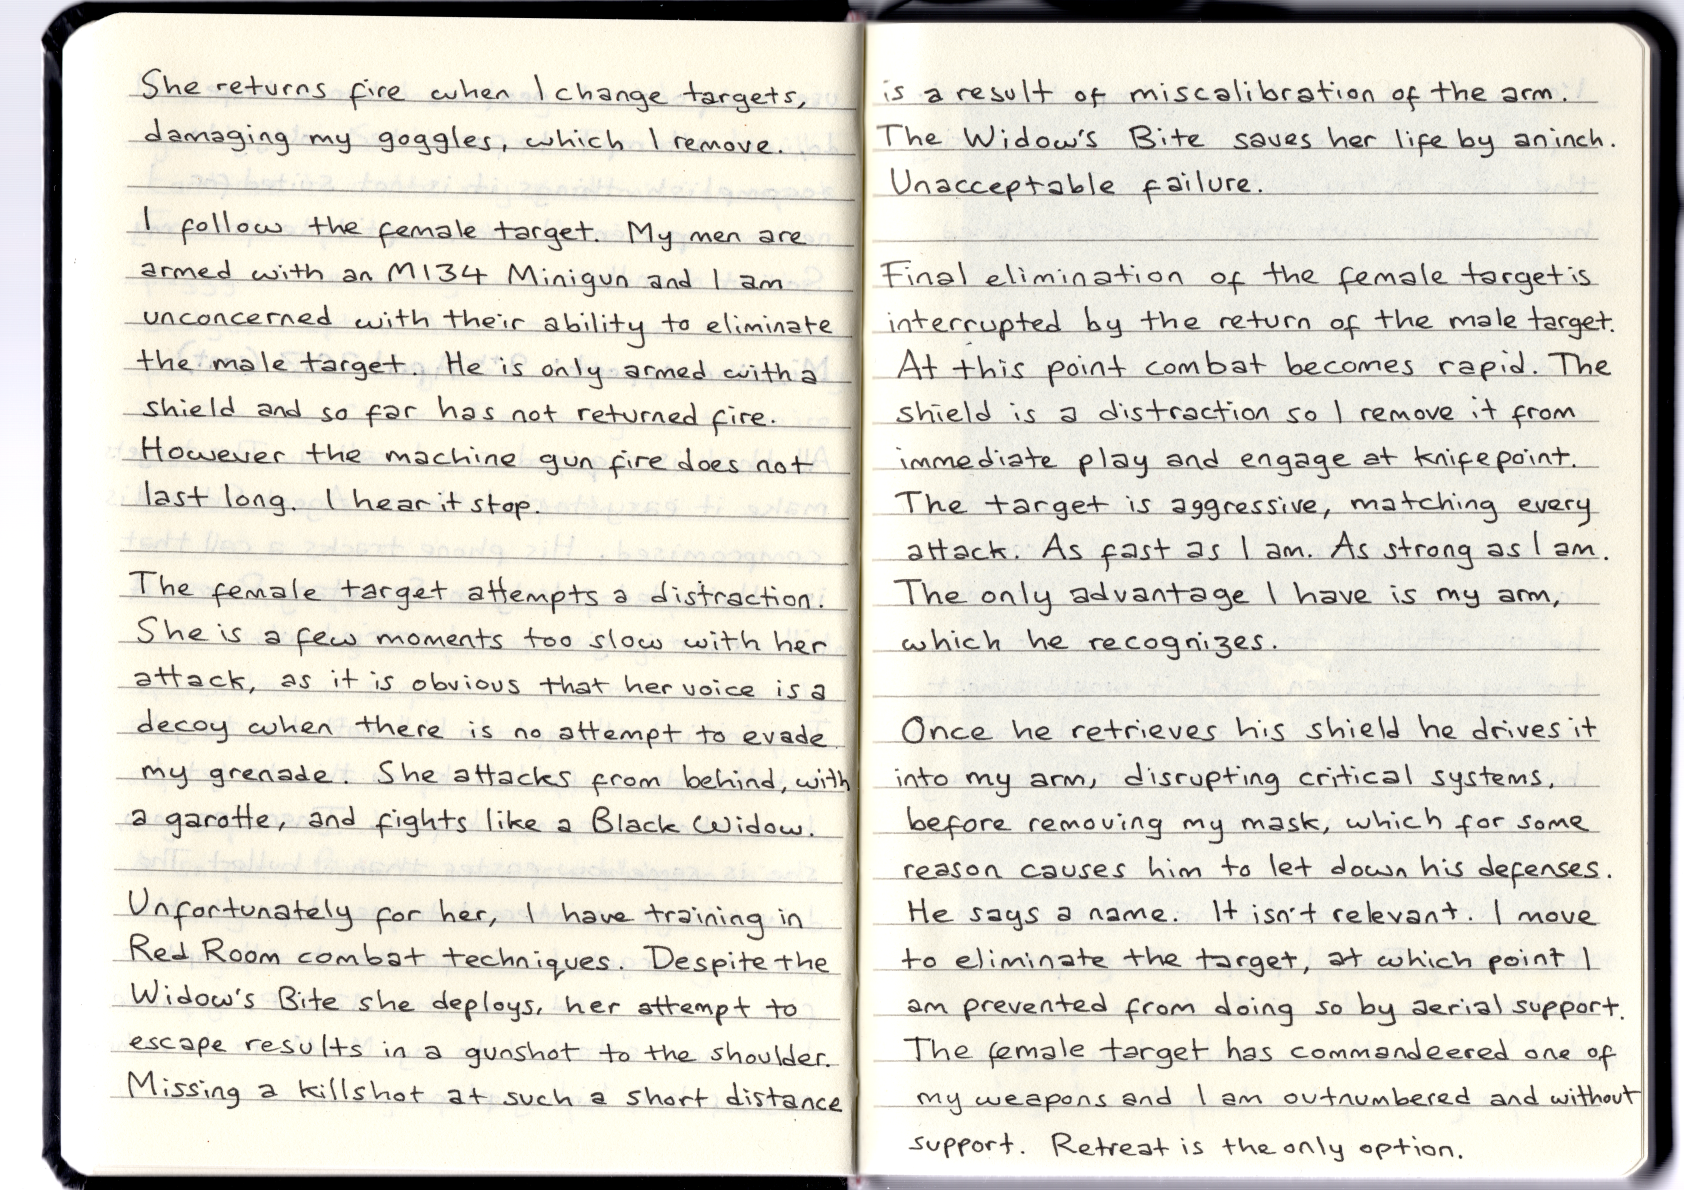 She returns fire when I change targets,
damaging my goggles, which I remove.
I follow the female target. My men are
armed with an M134 Minigun and I am
unconcerned with their ability to eliminate
the male target. He is only armed with a
shield and so far has not returned fire.
However the machine gun fire does not
last long. I hear it stop.
The female target attempts a distraction.
She is a few moments too slow with her
attack, as it is obvious that her voice is a
decoy when there is no attempt to evade
my grenade. She attacks from behind, with
a garotte, and fights like a Black Widow.
Unfortunately for her, I have training in
Red Room combat techniques. Despite the
Widow's Bite she deploys, her attempt to
escape results in a gunshot to the shoulder.
Missing a killshot at such a short distance
is a result of miscalibration of the arm.
The Widow's Bite saves her life by an inch.
Unacceptable failure.
Final elimination of the female target is
interrupted by the return of the male target.
At this point combat becomes rapid. The
shield is a distraction so I remove it from
immediate play and engage at knifepoint.
The target is aggressive, matching every
attack. As fast as I am. As strong as I am.
The only advantage I have is my arm,
which he recognizes.
Once he retrieves his shield he drives it
into my arm, disrupting critical systems,
before removing my mask, which for some
reason causes him to let down his defenses.
He says a name. It isn't relevant. I move
to eliminate the target, at which point I
am prevented from doing so by aerial support.
The female target has commandeered one of
my weapons and I am outnumbered and without
support. Retreat is the only option.